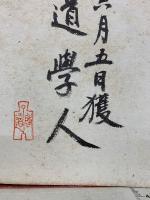 六月五日獲
道學人